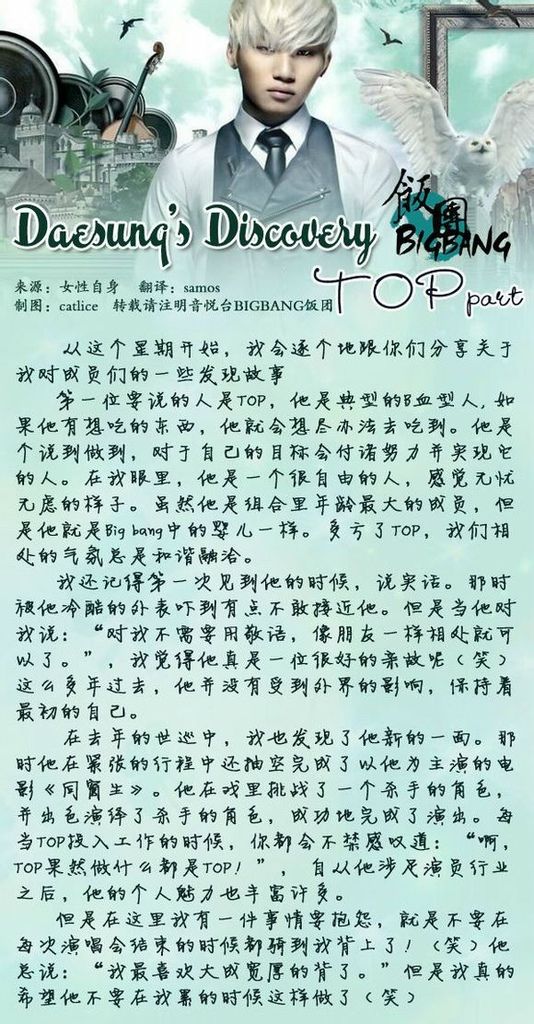 Daesung's Discovery
飯團
BIGBANG
来源：女性自身 翻译：samos
制图：catlice 转载请注明音悦台BIGBANG饭团
TOP part
从这个星期开始，我会逐个地跟你们分享关于
我对成员们的一些发现故事
第一位要说的人是TOP，他是典型的B血型人，如
果他有想吃的东西，他就会想尽办法去吃到。他是
个说到做到，对于自己的目标会付诸努力并实现它
的人。在我眼里，他是一个很自由的人，感觉无忧
无虑的样子。虽然他是组合里年龄最大的成员，但
是他就是Big bang中的婴儿一样。多亏了TOP，我们相
处的气氛总是和谐融洽。
我还记得第一次见到他的时候，说实话。那时
被他冷酷的外表吓到有点不敢接近他。但是当他对
我说：“对我不需要用敬语，像朋友一样相处就可
以了。”，我觉得他真是一位很好的亲故呢（笑）
这么多年过去，他并没有受到外界的影响，保持着
最初的自己。
在去年的世巡中，我也发现了他新的一面。那
时他在紧张的行程中还抽空完成了以他为主演的电
影《同窗生》。他在戏里挑战了一个杀手的角色，
并出色演绎了杀手的角色，成功地完成了演出。每
当TOP投入工作的时候，你都会不禁感叹道：“啊，
TOP果然做什么都是TOP！”，自从他涉足演员行业
之后，他的个人魅力也丰富许多。
但是在这里我有一件事情要抱怨，就是不要在
每次演唱会结束的时候都骑到我背上了！（笑）他
总说：“我最喜欢大成宽厚的背了。”但是我真的
希望他不要在我累的时候这样做了（笑）